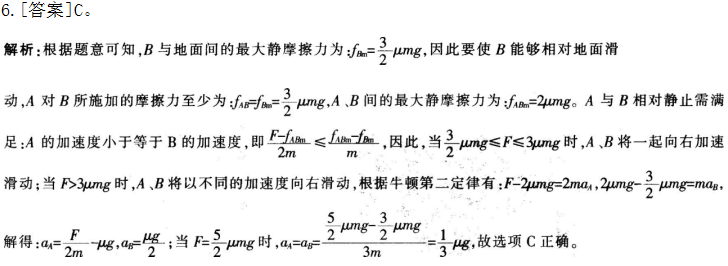 6.[答案]C。
解析:根据题意可知,B 与地面间的最大静摩擦力为:f_{Bm}=\frac{3}{2}μmg,因此要使 B 能够相对地面滑
动,A 对 B 所施加的摩擦力至少为:f_{AB}=f_{Bm}=\frac{3}{2}μmg,A、B间的最大静摩擦力为:f_{ABm}=2μmg。A 与 B 相对静止需满
足:A 的加速度小于等于 B 的加速度,即\frac{F-f_{ABm}}{2m}≤\frac{f_{ABm}-f_{Bm}}{m},因此,当\frac{3}{2}μmg≤F≤3μmg 时,A、B 将一起向右加速
滑动;当 F>3μmg 时,A、B 将以不同的加速度向右滑动,根据牛顿第二定律有:F-2μmg=2ma_A,2μmg-\frac{3}{2}μmg=ma_B,
解得:a_A=\frac{F}{2m}-μg,a_B=\frac{μg}{2};当 F=\frac{5}{2}μmg 时,a_A=a_B=\frac{\frac{5}{2}μmg-\frac{3}{2}μmg}{3m}=\frac{1}{3}μg,故选项 C 正确。